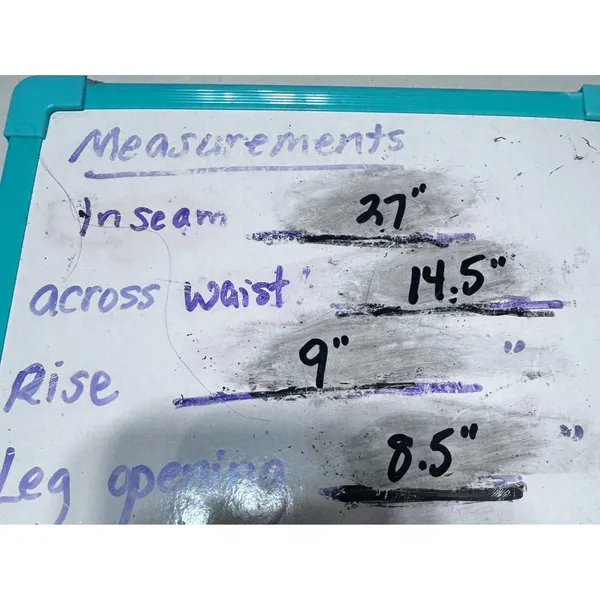 Measurements
Inseam 27"
across waist: 14.5"
Rise 9" "
Leg opening 8.5" "